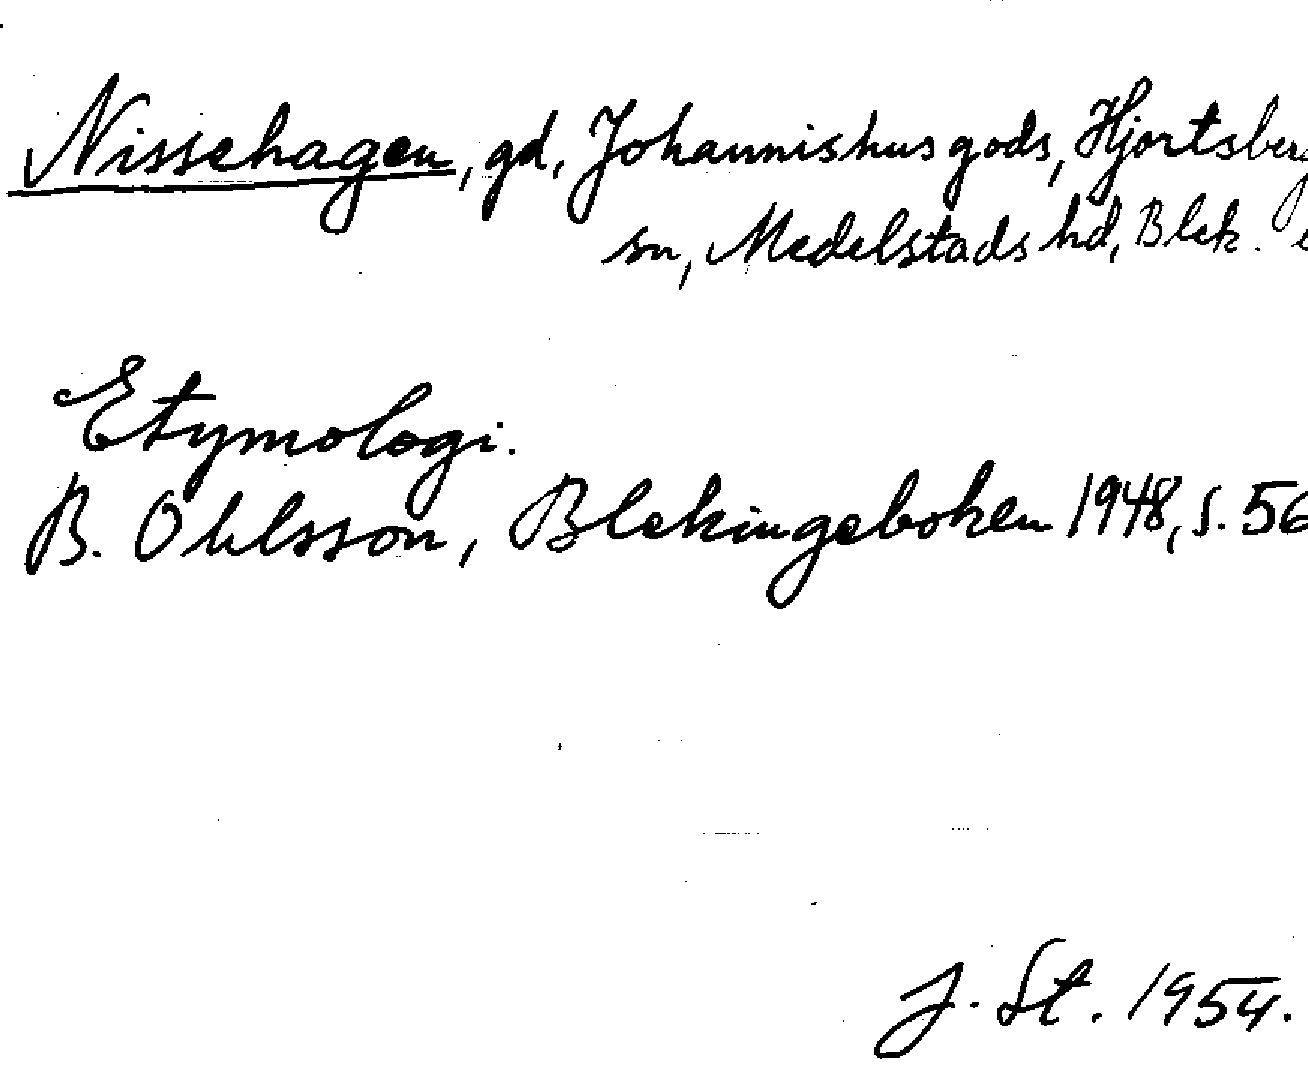 Nissehagen, gd, Johannishus gods, Hjortsberg
sn, Medelstads hd, Blek.
Etymologi.
B. Ohlsson, Blekingeboken 1948, s. 56
J. St. 1954.